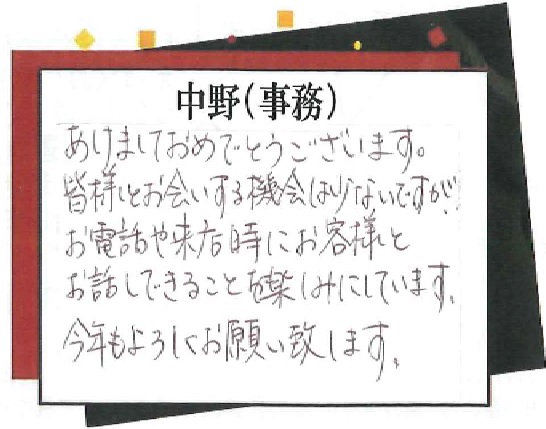 中野(事務)
あけましておめでとうございます。
皆様とお会いする機会は少ないですが、
お電話や来店時にお客様と
お話しできることを楽しみにしています。
今年もよろしくお願い致します。